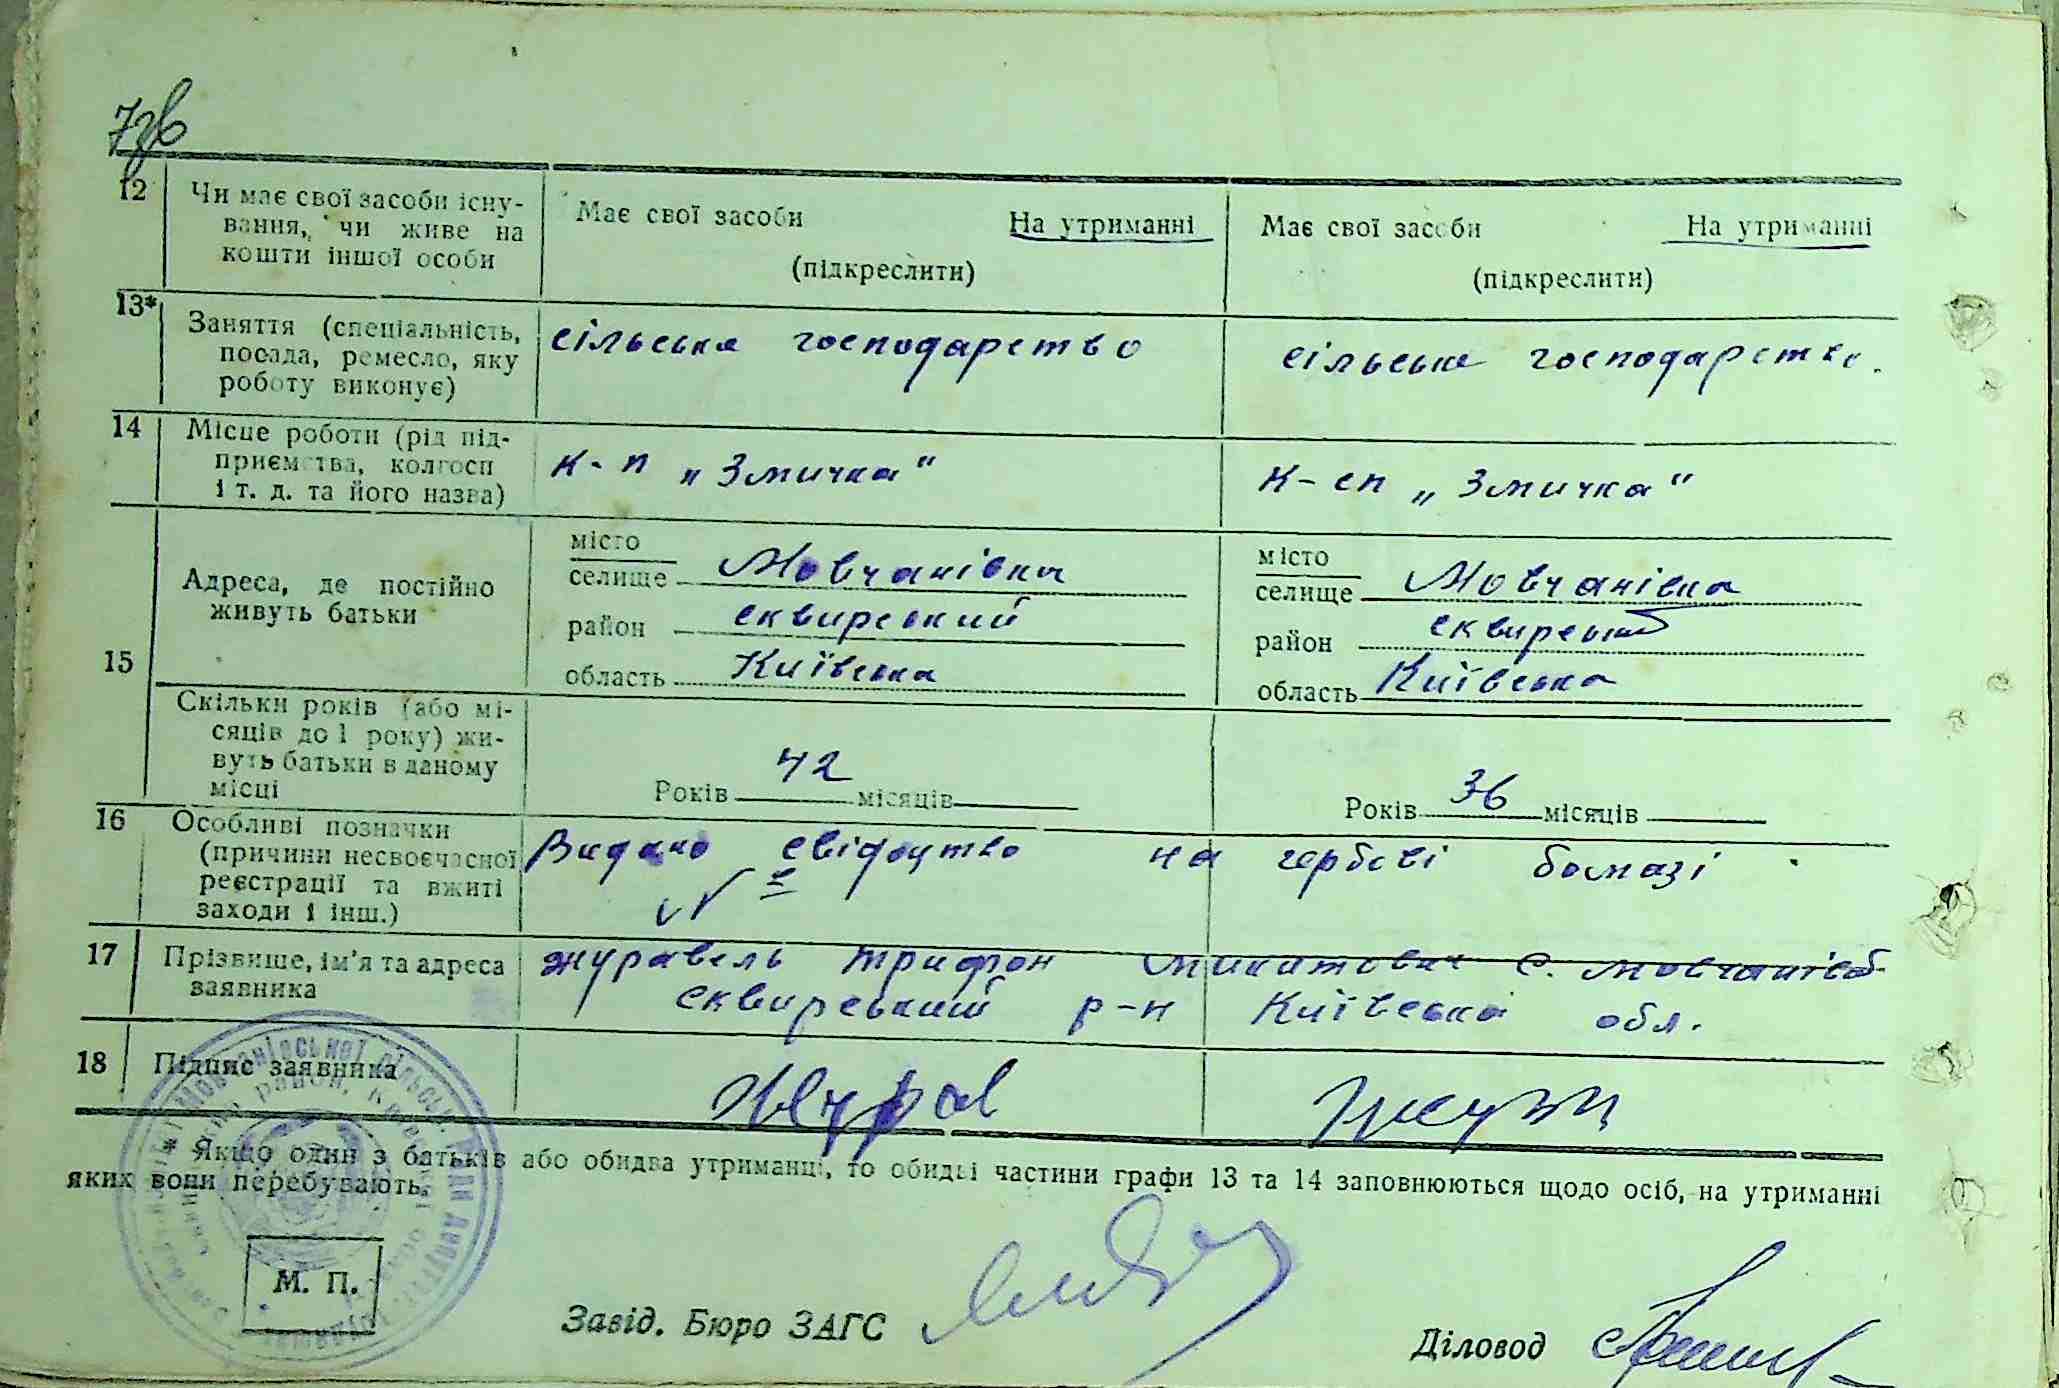 7зв
12 Чи має свої засоби існу-
вання, чи живе на
кошти іншої особи
Має свої засоби На утриманні
(підкреслити)
Має свої засоби На утриманні
(підкреслити)
13* Заняття (спеціальність,
посада, ремесло, яку
роботу виконує)
сільське господарство
сільське господарство.
14 Місце роботи (рід під-
приємства, колгосп
і т. д. та його назва)
к-п „Змичка"
к-сп „Змичка"
15
Адреса, де постійно
живуть батьки
місто
селище Мовчанівка
район сквирський
область Київська
місто
селище Мовчанівка
район сквирський
область Київська
Скільки років (або мі-
сяців до 1 року) жи-
вуть батьки в даному
місці
Років 42 місяців
Років 36 місяців
16 Особливі позначки
(причини несвоєчасної
реєстрації та вжиті
заходи і інш.)
Видано свідоцтво на гербові бомазі
№
17 Прізвище, ім'я та адреса
заявника
журавель трифон микитович с. мовчанівка
сквирський р-н Київська обл.
18 Підпис заявника
Журав
* Якщо один з батьків або обидва утриманці, то обидві частини графи 13 та 14 заповнюються щодо осіб, на утриманні
яких вони перебувають.
М. П.
Завід. Бюро ЗАГС
Діловод